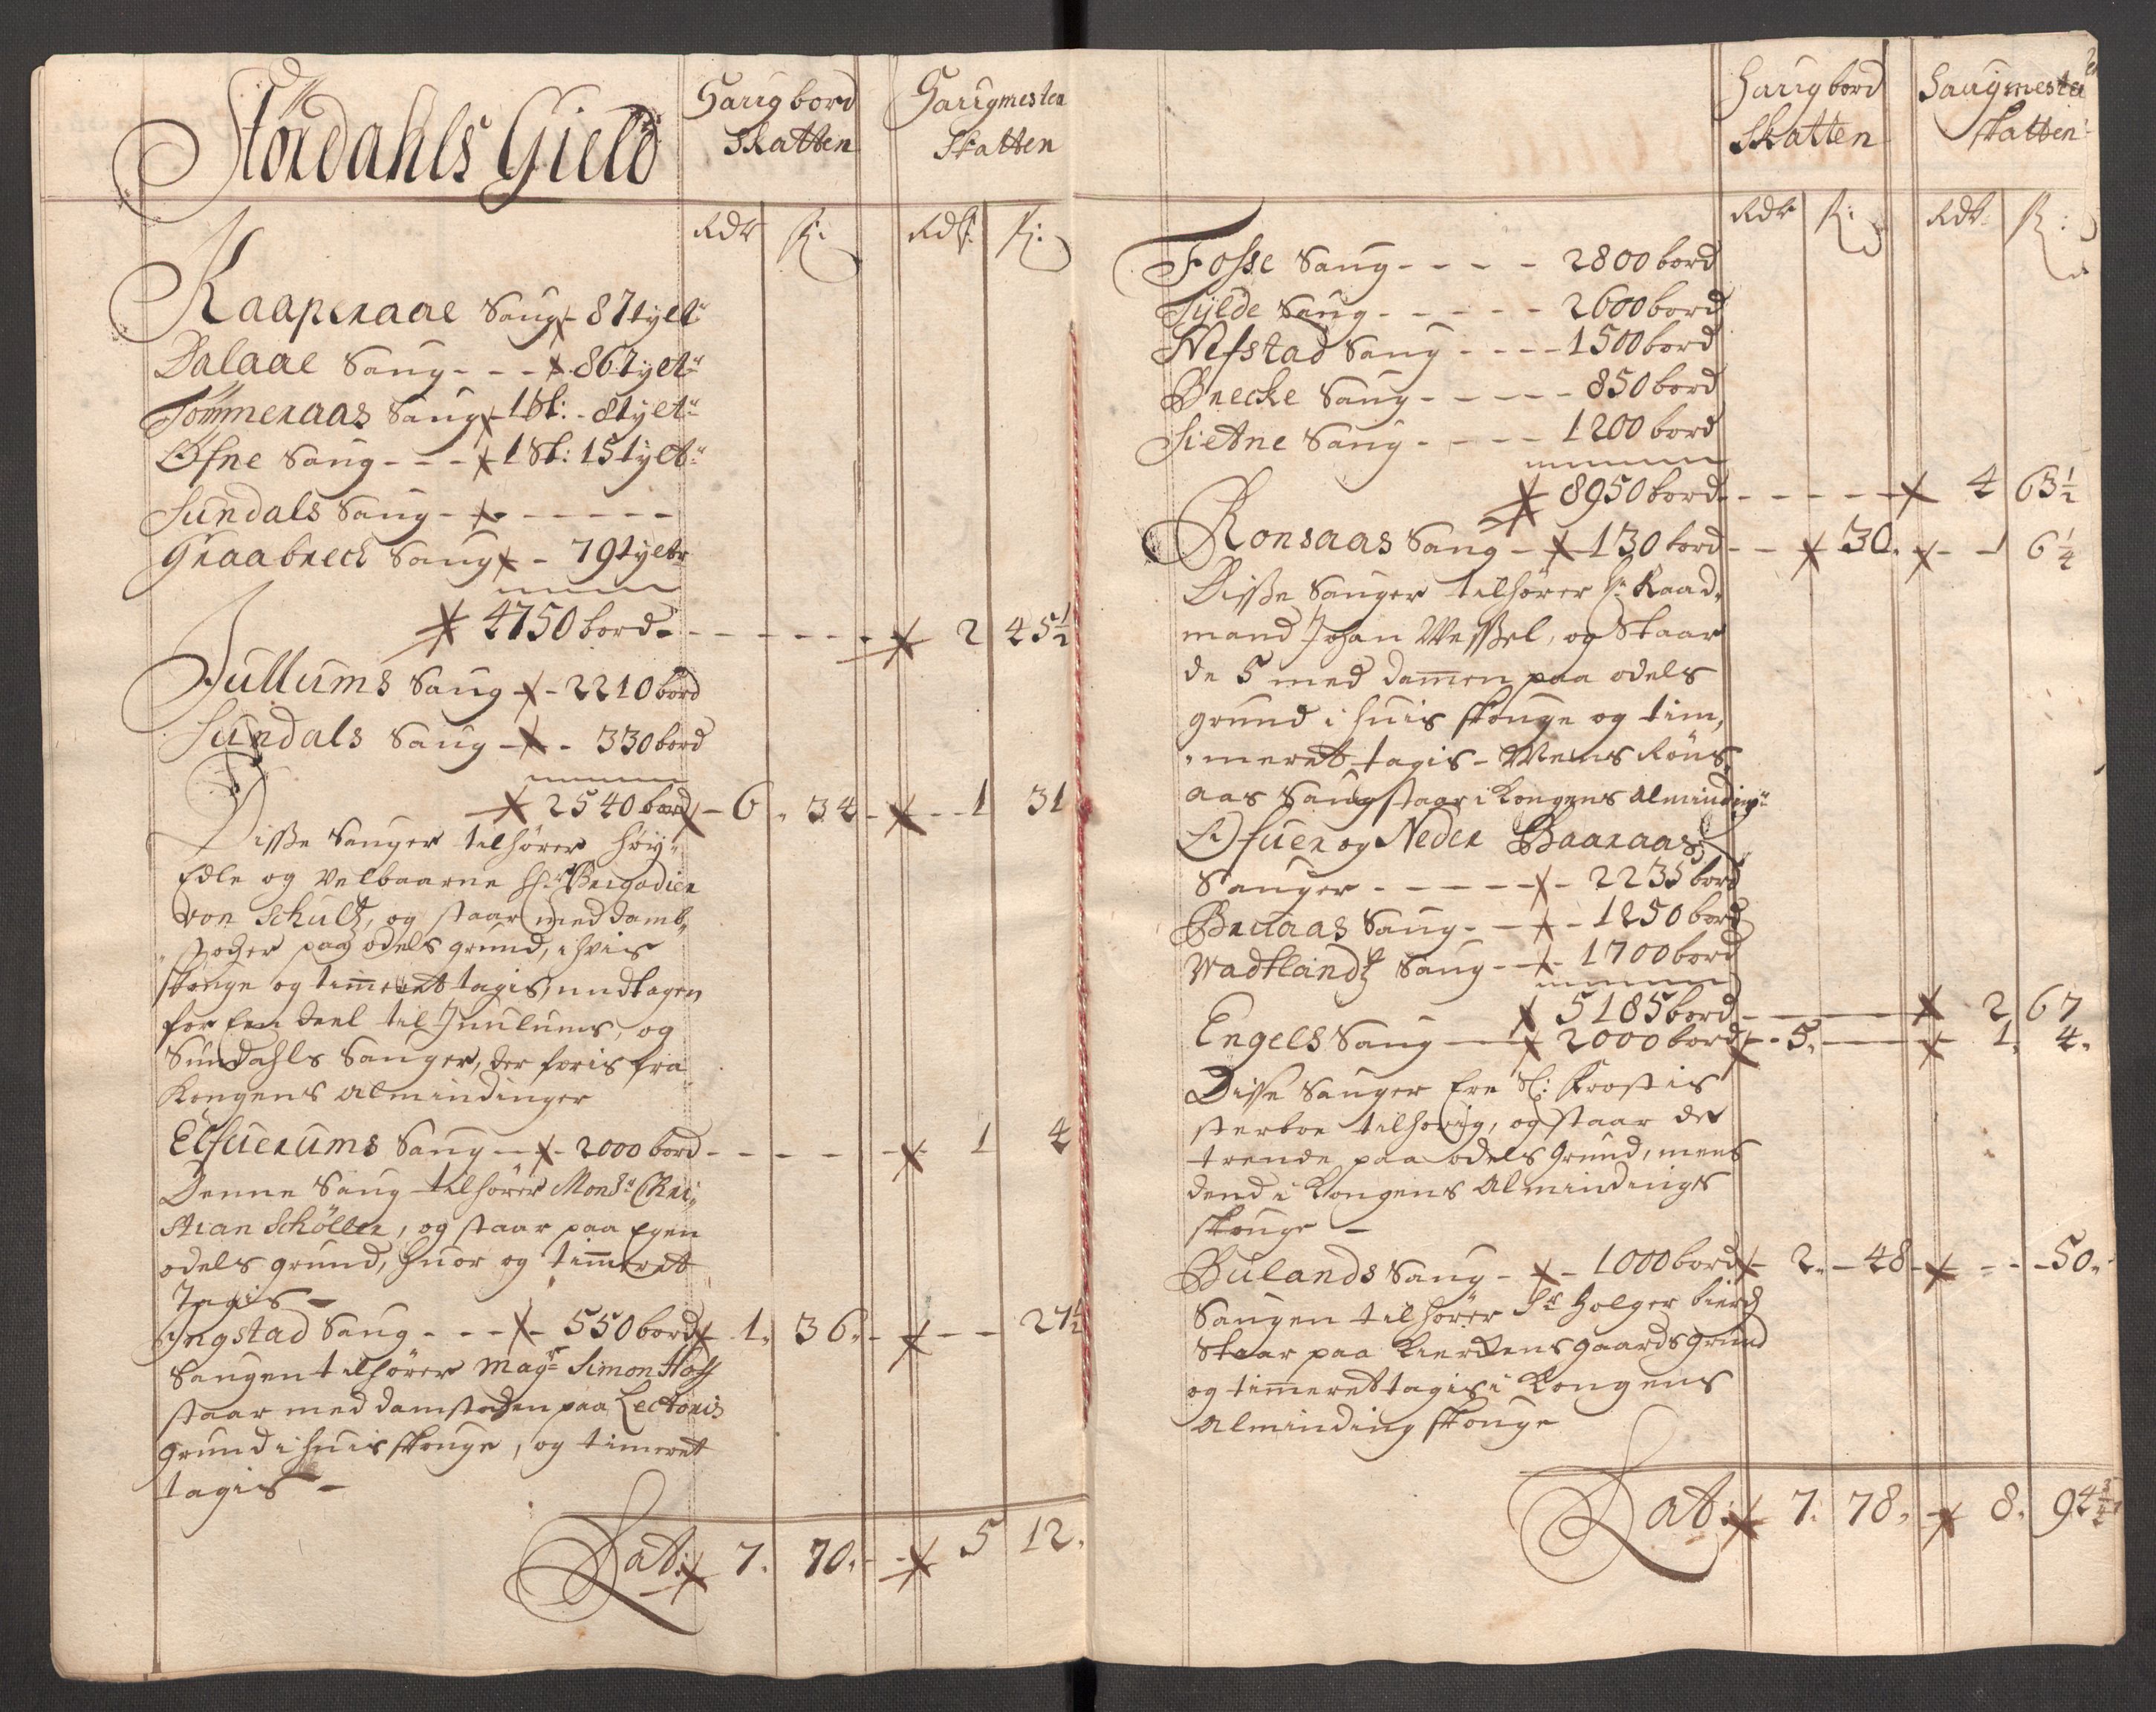 Stördahls Gield
Saugbord Skatten
Saugmester Skatten
Rdr ß:
Rdr: ß:
Kaaperaae Saug - 87 tyet:
Dalaae Saug - - - 86 tyet:
Tømmeraas Saug - 1 St: - 8 tyet:
Øfne Saug - - - 1 St: 15 tyet:
Sundals Saug - - - - - -
Graabreck Saug - 79 tyetr
4750 bord - - - - - - - 2 45½
Jullums Saug - - 2210 bord
Sundals Saug - - 330 bord
2540 bord - 6. 34 - - - 1 31
Disse Sauger tilhører høy-
Edle og Velbaarne Hr: Brigadier
von Schultz, og staar med damb-
stocker paa odels grund, i hvis
skouge og timeret tagis, undtagen
for Een deel til Jnulums, og
Sundahls Sauger, der føris fra
Kongens Almindinger
Elfuerums Saug - - 2000 bord - - - - - - 1 4
Denne Saug tilhører Monsr Chri-
stian Schöller, og staar paa Egen
odels grund, huor og timeret
Tagis -
Ingstad Saug - - - - 550 bord - 1. 36. - - - - 27½
Saugen tilhører Magr Simon Hoff
staar med damstaden paa Lectoris
Grund i huis skouge, og timeret
tagis -
Lat: 7. 70. - - 5 12.
Saugbord Skatten
Saugmester Skatten
Rdr ß:
Rdr ß:
Fosse Saug - - - - 2800 bord
Sylde Saug - - - - - 2600 bord
Nefstad Saug - - - - 1500 bord
Brecke Saug - - - - - 850 bord
Sietne Saug - - - - 1200 bord
8950 bord - - - - - - 4 63½
Ronsaas Saug - - 130 bord - - 30. - - 1 6¼
Disse Sauger tilhører Hr Raad-
mand Johan Wessel, og Staar
de 5 med damen paa odels
grund i huis skouge og tim-
meret tagis - Mens Röns-
aas Saug staar i Kongens Alminding
Ofuer og Neder Baaraas
Sauger - - - - - - 2235 bord
Bretaas Saug - - - - 1250 bord
Wadtlandtz Saug - - - 1700 bord
5185 bord - - - 2 67
Engels Saug - - 2000 bord - - 5. - - 1. 4.
Disse Sauger Ere Sl: Frostis
sterboe tilhørig, og staar de
trende paa odels Grund, mens
dend i Kongens Almindings
skouge -
Bulands Saug - - - 1000 bord - 2. - 48 - - - 50.
Saugen tilhører Hr Holger bierch
Staar paa Kierkens gaards grund
og timeret tagis i Kongens
Alminding skouge
Lat: 7. 78. - 8. 94¾